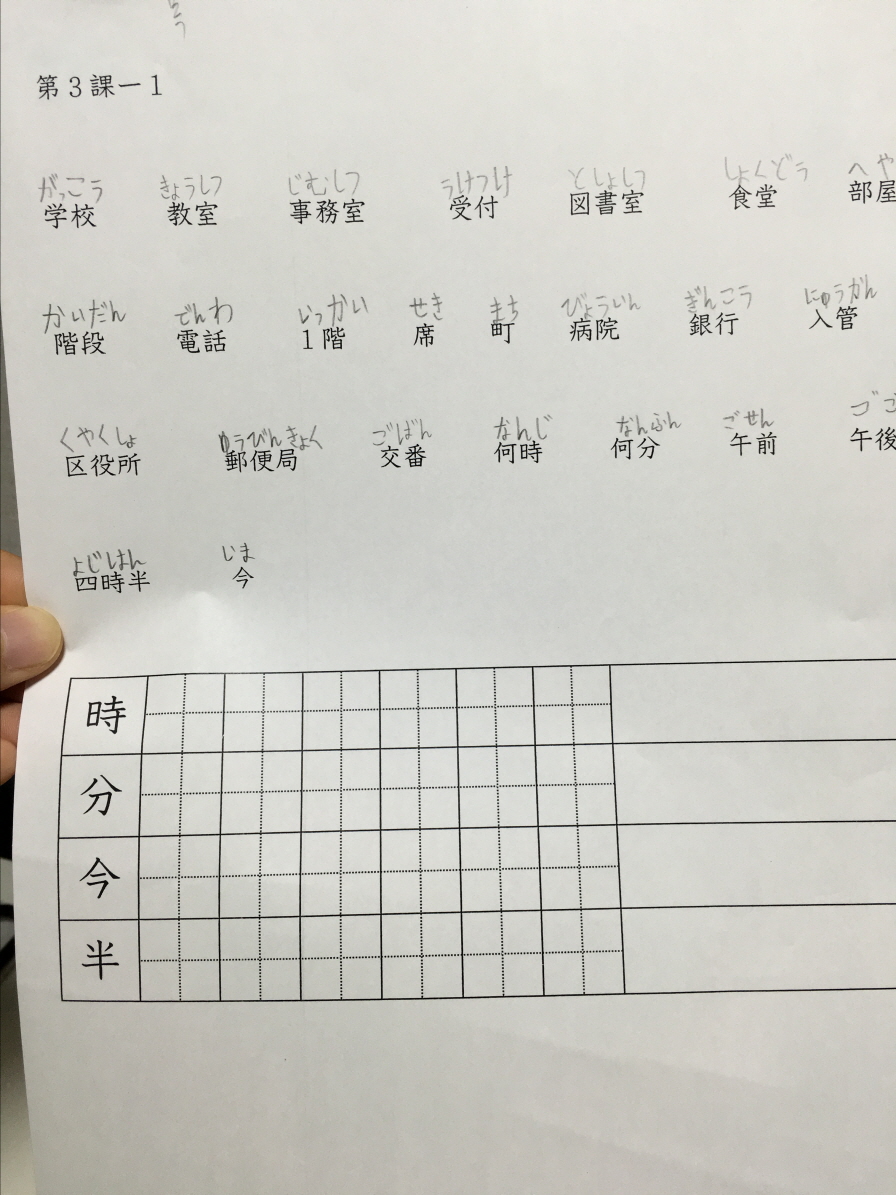 第３課ー１
がっこう きょうしつ じむしつ うけつけ としょしつ しょくどう へや
学校 教室 事務室 受付 図書室 食堂 部屋
かいだん でんわ いっかい せき まち びょういん ぎんこう にゅうかん
階段 電話 １階 席 町 病院 銀行 入管
くやくしょ ゆうびんきょく ごばん なんじ なんふん ごせん ごご
区役所 郵便局 交番 何時 何分 午前 午後
よじはん いま
四時半 今
時
分
今
半